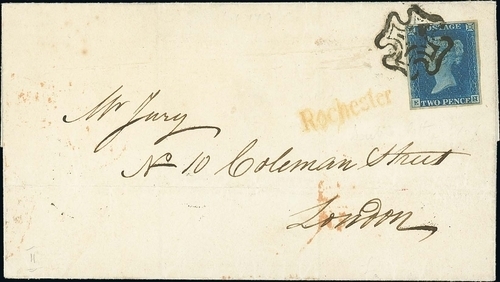 POSTAGE
TWO PENCE
Rochester
Mr Jury
No 10 Coleman Street
London